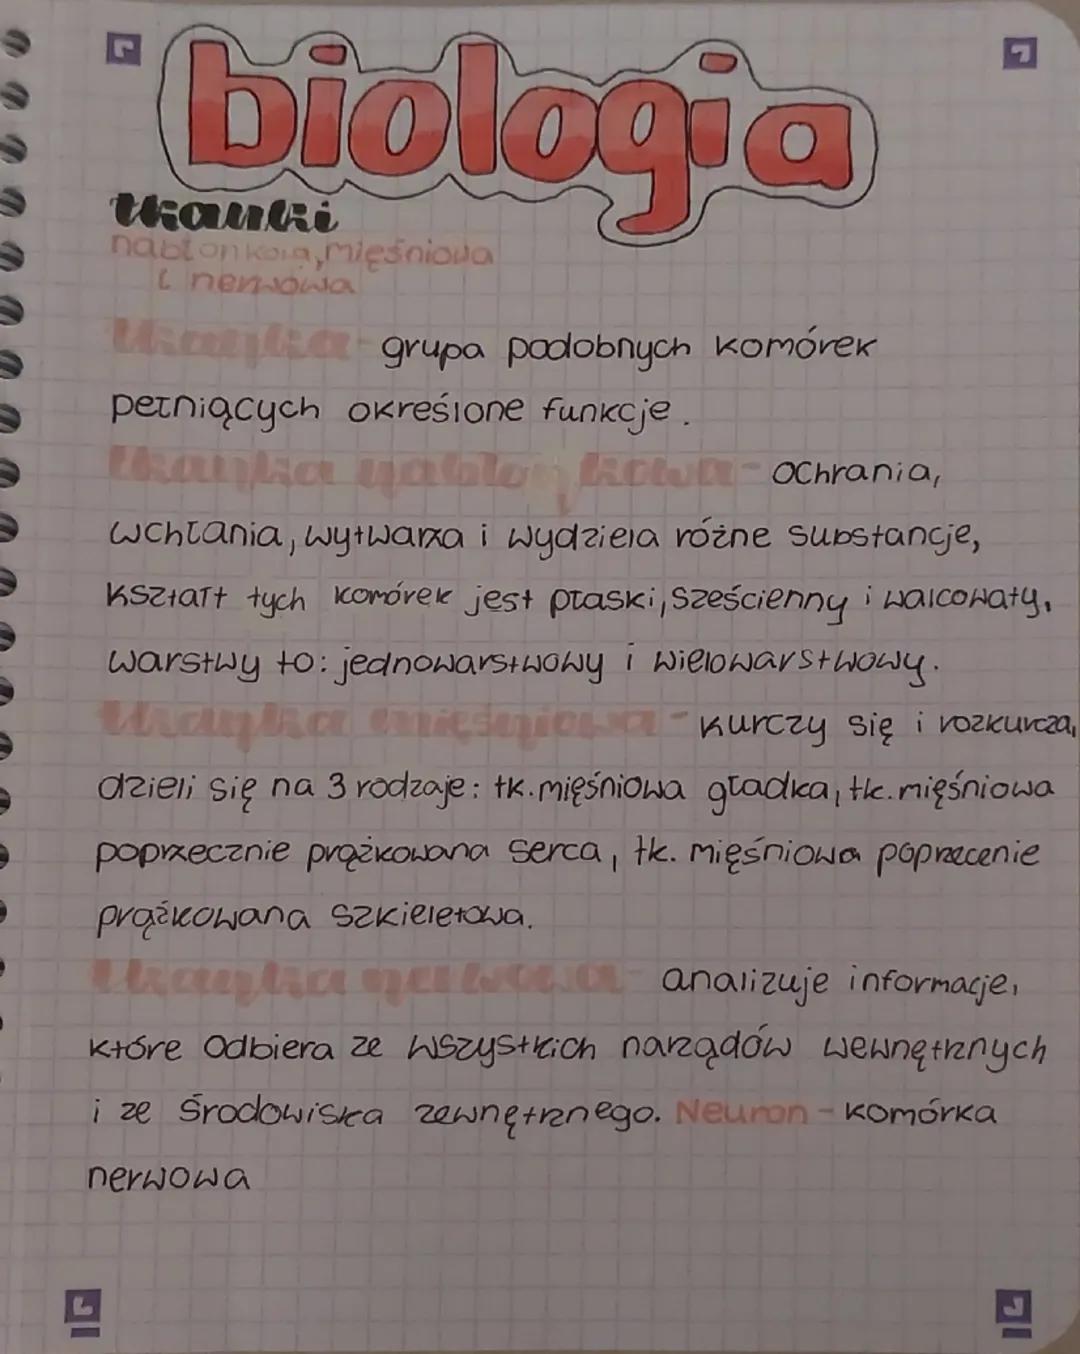 biologia
tkanki
nabłonkowa, mięśniowa
i nerwowa
tkanka - grupa podobnych komórek
pełniących określone funkcje.
tkanka nabłonkowa - ochrania,
wchłania, wytwarza i wydziela różne substancje,
kształt tych komórek jest płaski, sześcienny i walcowaty,
warstwy to: jednowarstwowy i wielowarstwowy.
tkanka mięśniowa - kurczy się i rozkurcza,
dzieli się na 3 rodzaje: tk. mięśniowa gładka, tk. mięśniowa
poprzecznie prążkowana serca, tk. mięśniowa poprzecenie
prążkowana szkieletowa.
tkanka nerwowa - analizuje informacje,
które odbiera ze wszystkich narządów wewnętrznych
i ze środowiska zewnętrznego. Neuron - komórka
nerwowa